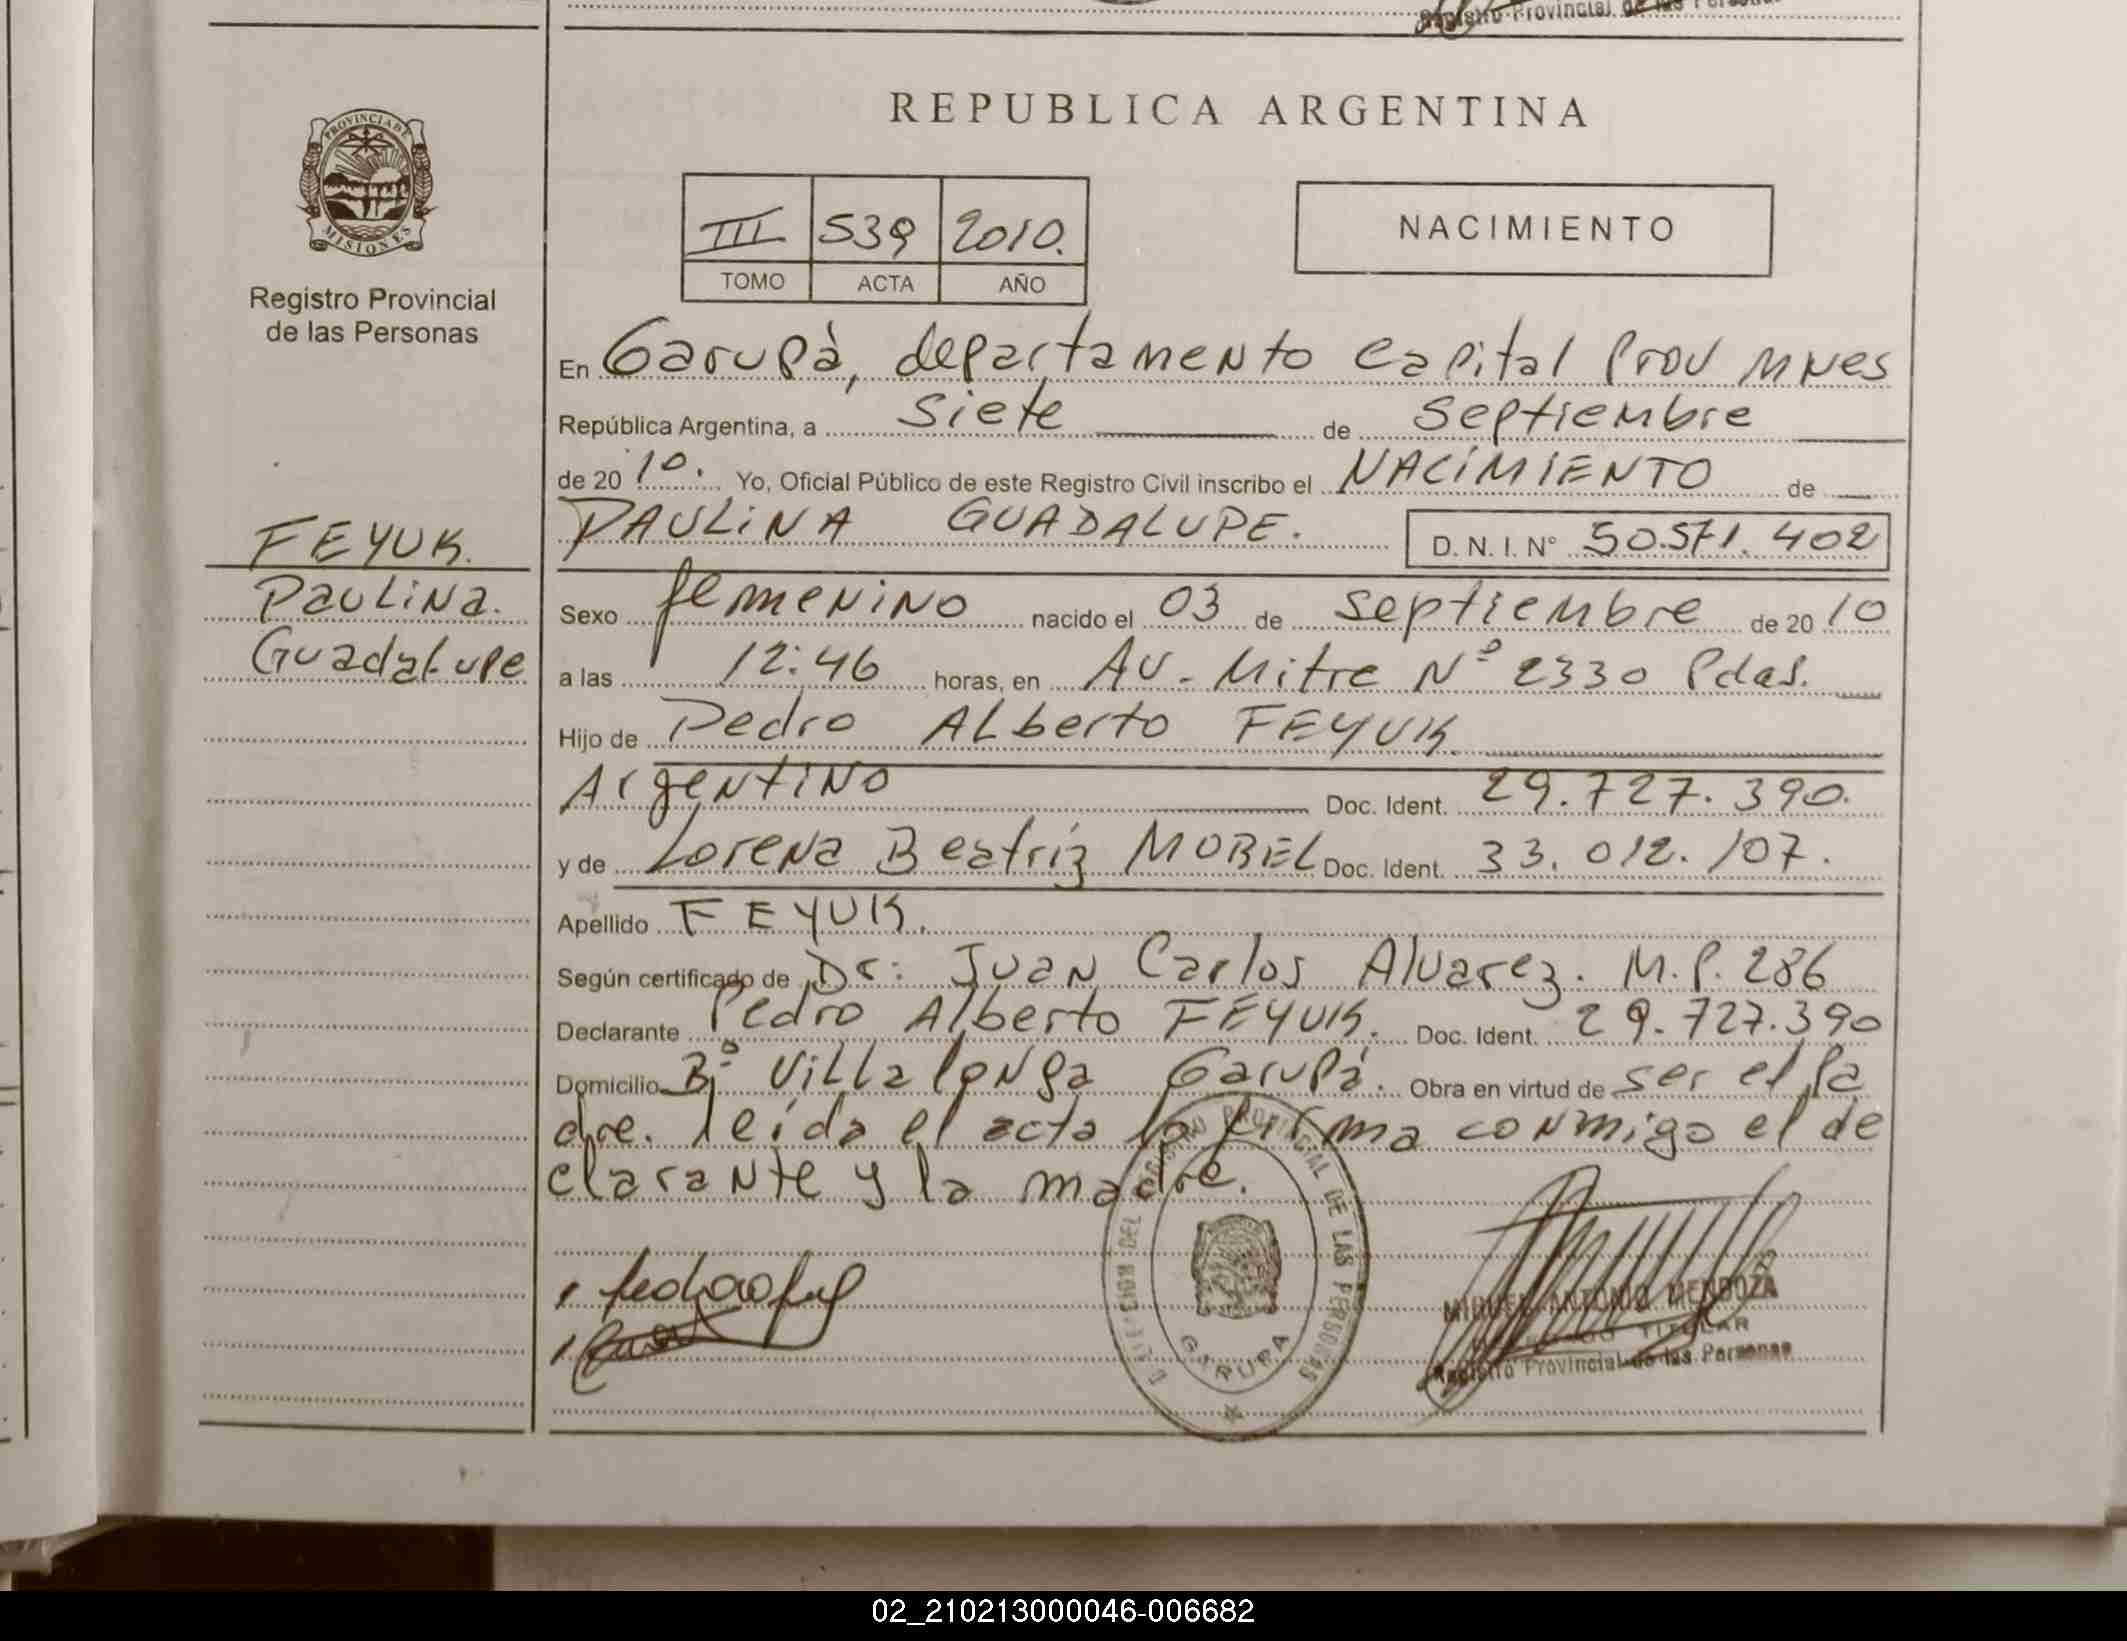 Registro Provincial de las Personas
REPUBLICA ARGENTINA
PROVINCIA DE
MISIONES
Registro Provincial
de las Personas
III 539 2010.
TOMO ACTA AÑO
NACIMIENTO
En Garupà, departamento capital Prov MNes
República Argentina, a siete de septiembre
de 2010. Yo, Oficial Público de este Registro Civil inscribo el NACIMIENTO de
PAULINA GUADALUPE. D. N. I. N° 50.571.402
FEYUK.
Paulina.
Guadalupe
Sexo femenino nacido el 03 de septiembre de 2010
a las 12:46 horas, en Av. Mitre Nº 2330 Pdas.
Hijo de Pedro Alberto FEYUK.
Argentino Doc. Ident. 29.727.390.
y de Lorena Beatriz MOREL Doc. Ident. 33.012.107.
Apellido FEYUK.
Según certificado de Dr: Juan Carlos Alvarez. M.P. 286
Declarante Pedro Alberto FEYUK. Doc. Ident. 29.727.390
Domicilio Bº Villa longa Garupá. Obra en virtud de ser el pa
dre. leída el acta la firma conmigo el de
clarante y la madre.
DIRECCION DEL REGISTRO PROVINCIAL DE LAS PERSONAS
GARUPA
MIGUEL ANTONIO MENDOZA
TITULAR
Registro Provincial de las Personas
02_210213000046-006682